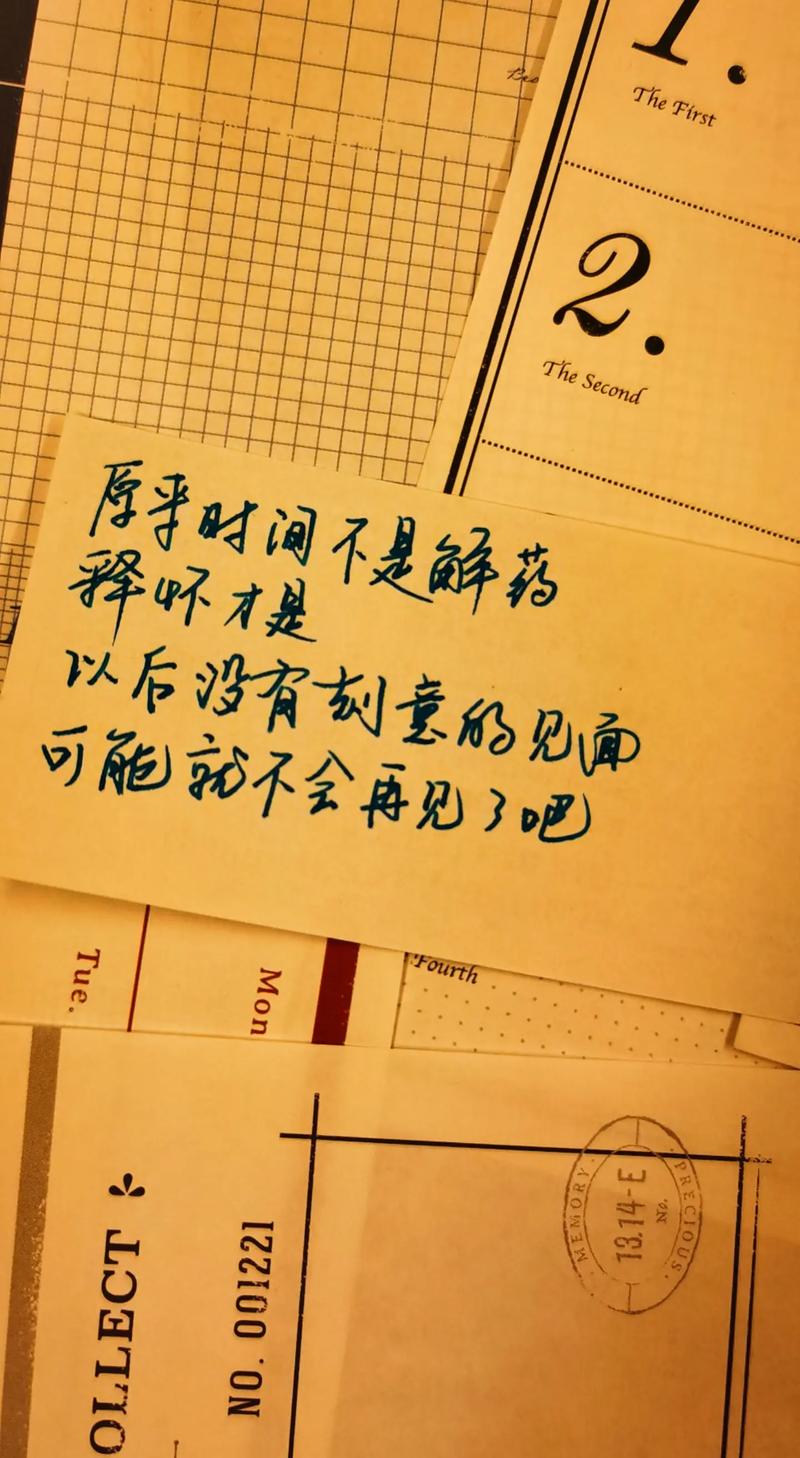 Bes
1.
The First
2.
The Second
原来时间不是解药
释怀才是
以后没有刻意的见面
可能就不会再见了吧
Tue.
Mon
Fourth
OLLECT
NO. 001221
MEMORY
PRECIOUS
13.14-E
No.